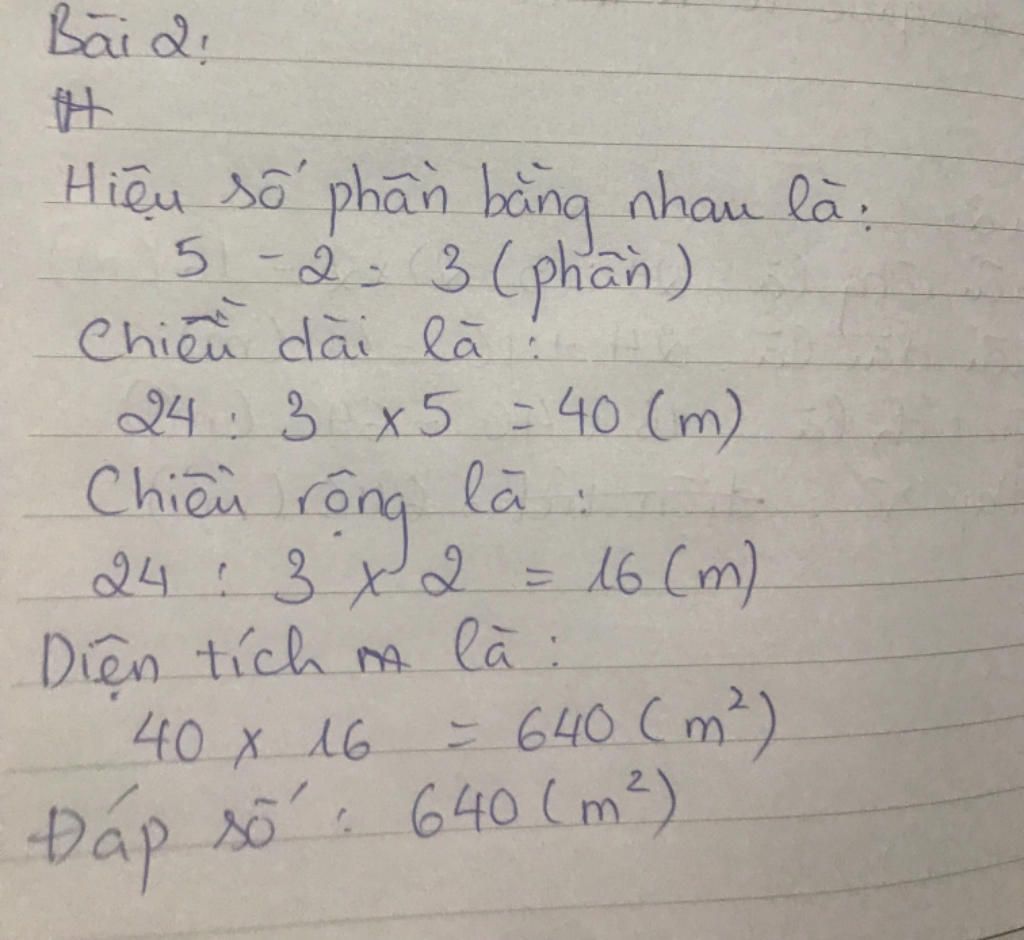 Bài 2:
H
Hiệu số phần bằng nhau là:
5 - 2 = 3 (phần)
Chiều dài là :
24 : 3 x 5 = 40 (m)
Chiều rộng là :
24 : 3 x 2 = 16 (m)
Diện tích là :
40 x 16 = 640 (m²)
Đáp số : 640 (m²)